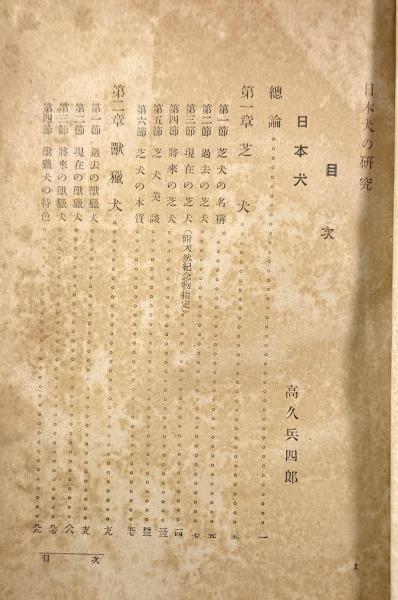 日本犬の研究
目次
日本犬
高久兵四郎
總論
第一章 芝犬
第一節 芝犬の名稱
第二節 過去の芝犬
第三節 現在の芝犬(附天然紀念物指定)
第四節 將來の芝犬
第五節 芝犬美談
第六節 芝犬の本質
第二章 獸獵犬
第一節 過去の獸獵犬
第二節 現在の獸獵犬
第三節 將來の獸獵犬
第四節 獸獵犬の特色
目次
1